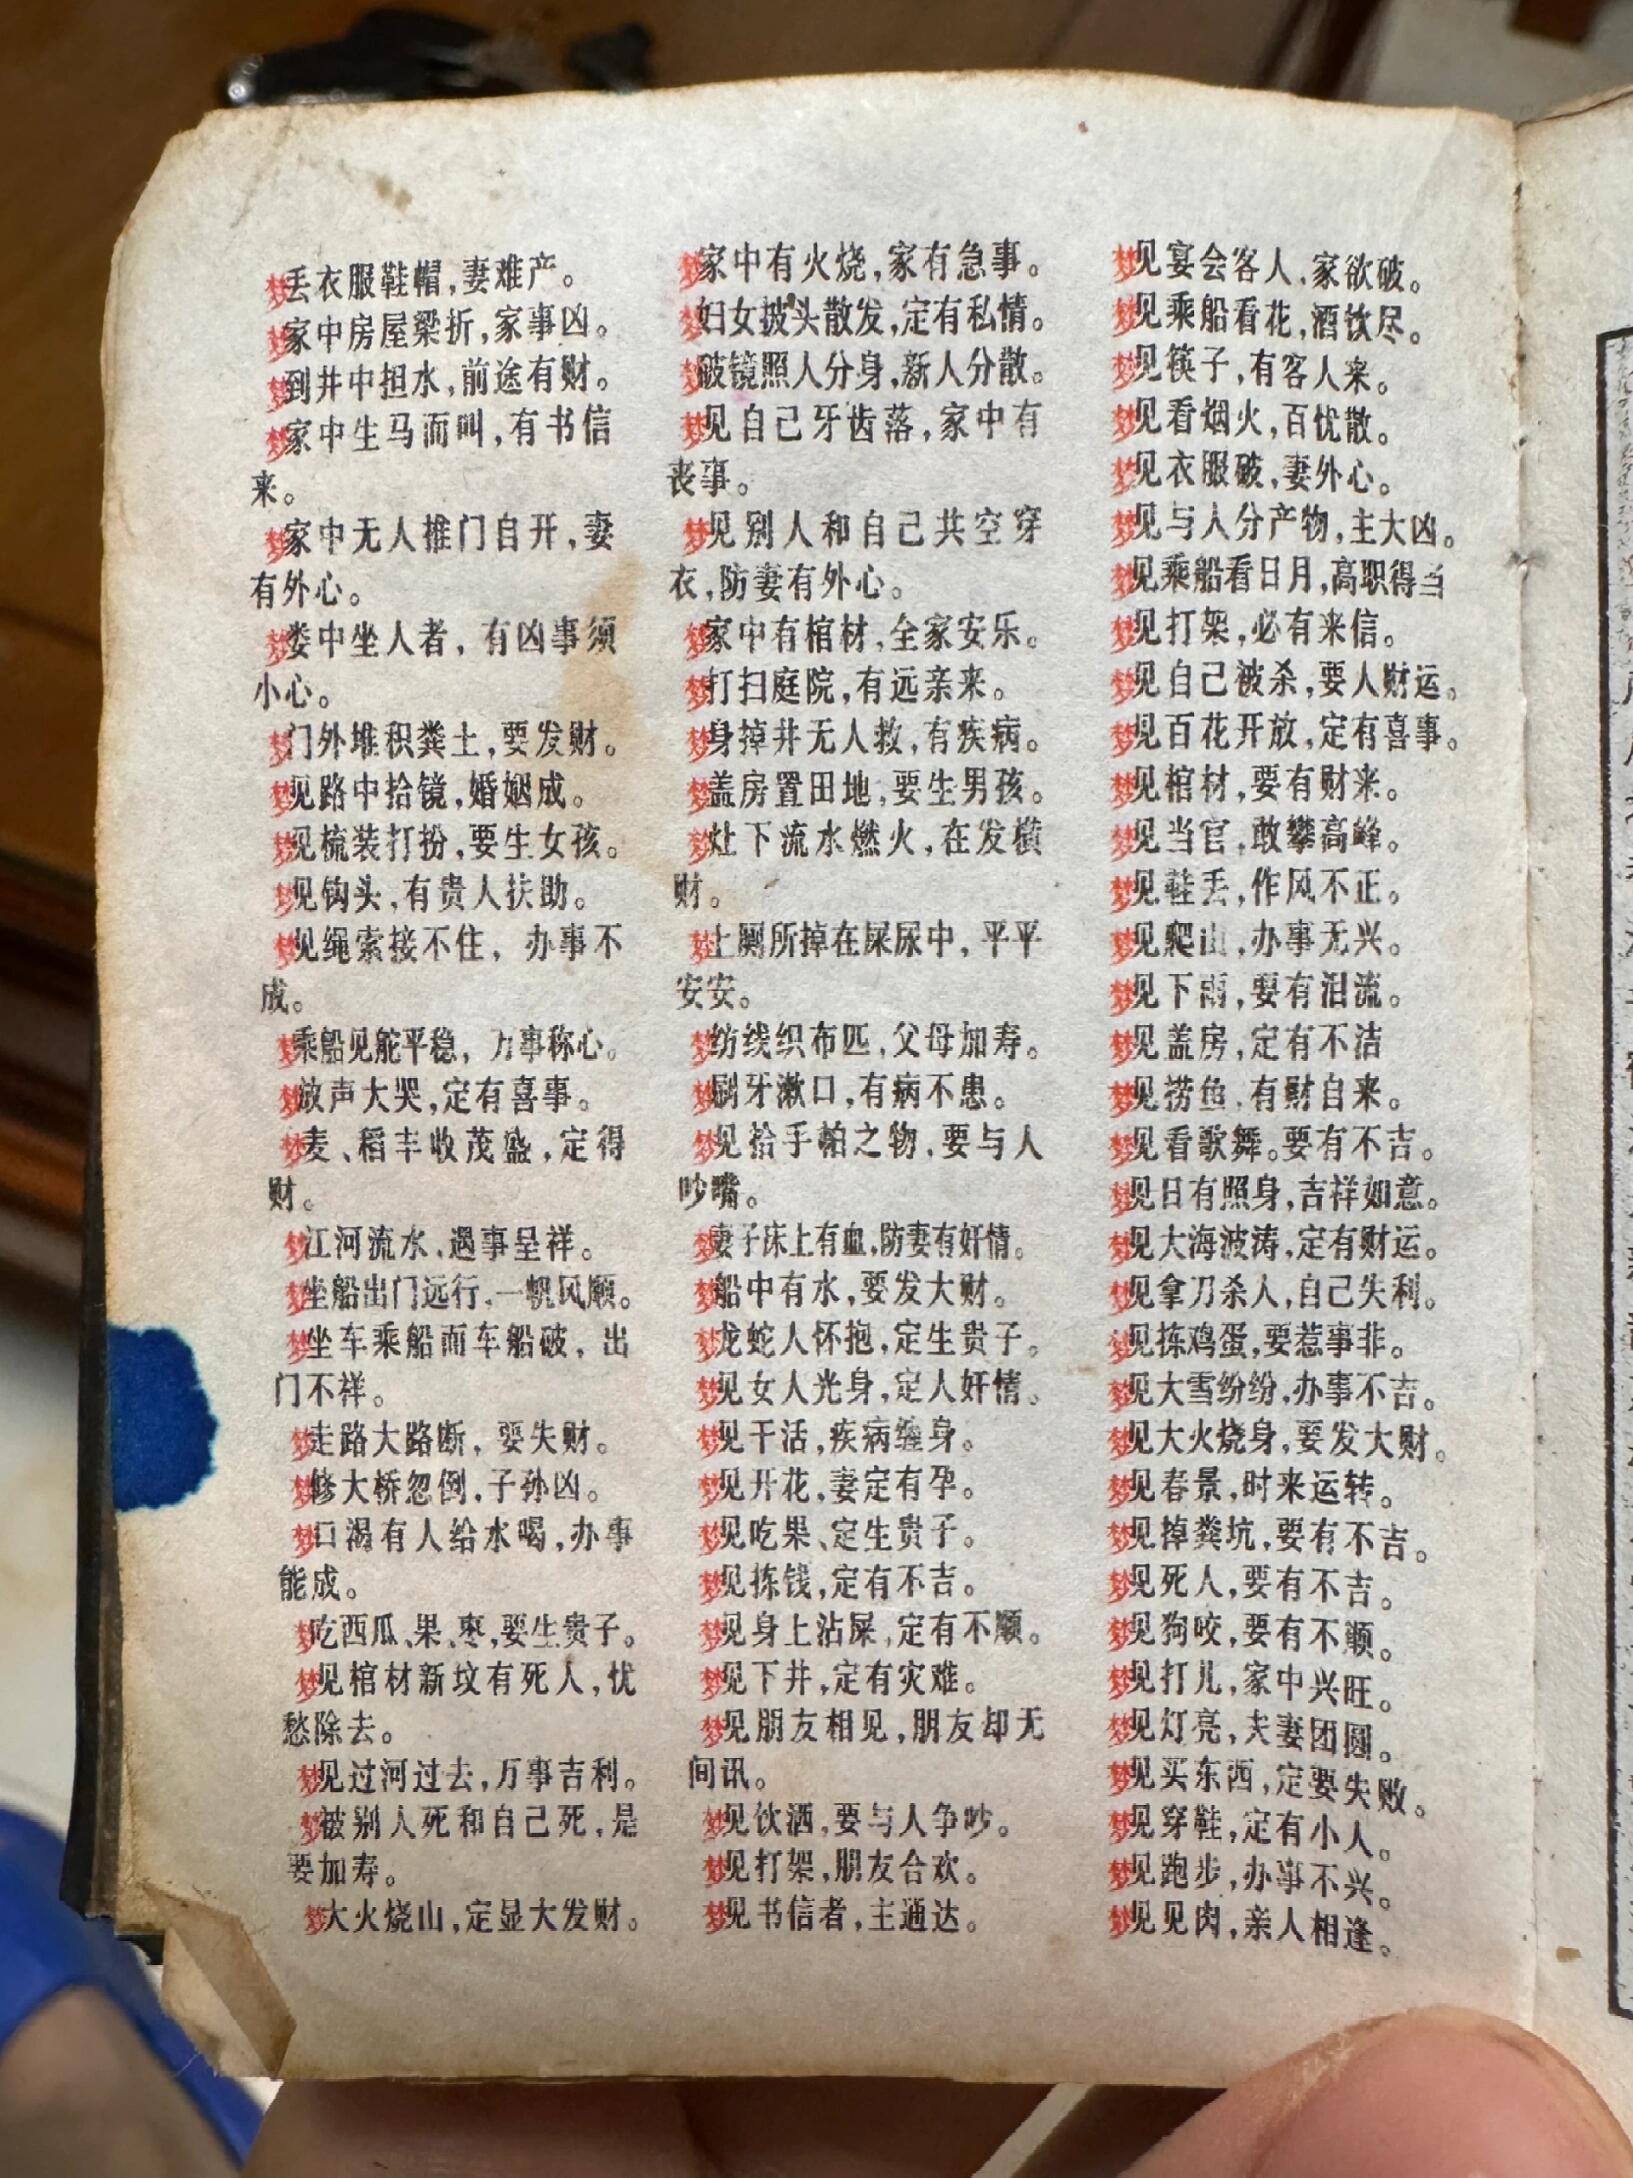 梦丢衣服鞋帽,妻难产。
梦家中房屋梁折,家事凶。
梦到井中担水,前途有财。
梦家中生马而叫,有书信
来。
梦家中无人推门自开,妻
有外心。
梦娄中坐人者,有凶事须
小心。
梦门外堆积粪土,要发财。
梦见路中拾镜,婚姻成。
梦见梳装打扮,要生女孩。
梦见钩头,有贵人扶助。
梦见绳索接不住,办事不
成。
梦乘船见舵平稳,万事称心。
梦放声大哭,定有喜事。
梦麦、稻丰收茂盛,定得
财。
梦江河流水、遇事呈祥。
梦坐船出门远行,一帆风顺。
梦坐车乘船而车船破,出
门不祥。
梦走路大路断,要失财。
梦修大桥忽倒,子孙凶。
梦口渴有人给水喝,办事
能成。
梦吃西瓜、果、枣,要生贵子。
梦见棺材新坟有死人,忧
愁除去。
梦见过河过去,万事吉利。
梦被别人死和自己死,是
要加寿。
梦大火烧山,定显大发财。
梦家中有火烧,家有急事。
梦妇女披头散发,定有私情。
梦破镜照人分身,新人分散。
梦见自己牙齿落,家中有
丧事。
梦见别人和自己共空穿
衣,防妻有外心。
梦家中有棺材,全家安乐。
梦打扫庭院,有远亲来。
梦身掉井无人救,有疾病。
梦盖房置田地,要生男孩。
梦灶下流水燃火,在发横
财。
梦上厕所掉在屎尿中,平平
安安。
梦纺线织布匹,父母加寿。
梦刷牙漱口,有病不患。
梦见拾手帕之物,要与人
吵嘴。
梦妻子床上有血,防妻有奸情。
梦船中有水,要发大财。
梦龙蛇人怀抱,定生贵子。
梦见女人光身,定人奸情。
梦见干活,疾病缠身。
梦见开花,妻定有孕。
梦见吃果、定生贵子。
梦见拣钱,定有不吉。
梦见身上沾屎,定有不顺。
梦见下井,定有灾难。
梦见朋友相见,朋友却无
间讯。
梦见饮酒,要与人争吵。
梦见打架,朋友合欢。
梦见书信者,主通达。
梦见宴会客人,家欲破。
梦见乘船看花,酒饮尽。
梦见筷子,有客人来。
梦见看烟火,百忧散。
梦见衣服破,妻外心。
梦见与人分产物,主大凶。
梦见乘船看日月,高职得当
梦见打架,必有来信。
梦见自己被杀,要人财运。
梦见百花开放,定有喜事。
梦见棺材,要有财来。
梦见当官,敢攀高峰。
梦见鞋丢,作风不正。
梦见爬山,办事无兴。
梦见下雨,要有泪流。
梦见盖房,定有不洁
梦见捞鱼,有财自来。
梦见看歌舞。要有不吉。
梦见日有照身,吉祥如意。
梦见大海波涛,定有财运。
梦见拿刀杀人,自己失利。
梦见拣鸡蛋,要惹事非。
梦见大雪纷纷,办事不吉。
梦见大火烧身,要发大财。
梦见春景,时来运转。
梦见掉粪坑,要有不吉。
梦见死人,要有不吉。
梦见狗咬,要有不顺。
梦见打儿,家中兴旺。
梦见灯亮,夫妻团圆。
梦见买东西,定要失败。
梦见穿鞋,定有小人。
梦见跑步,办事不兴。
梦见见肉,亲人相逢。